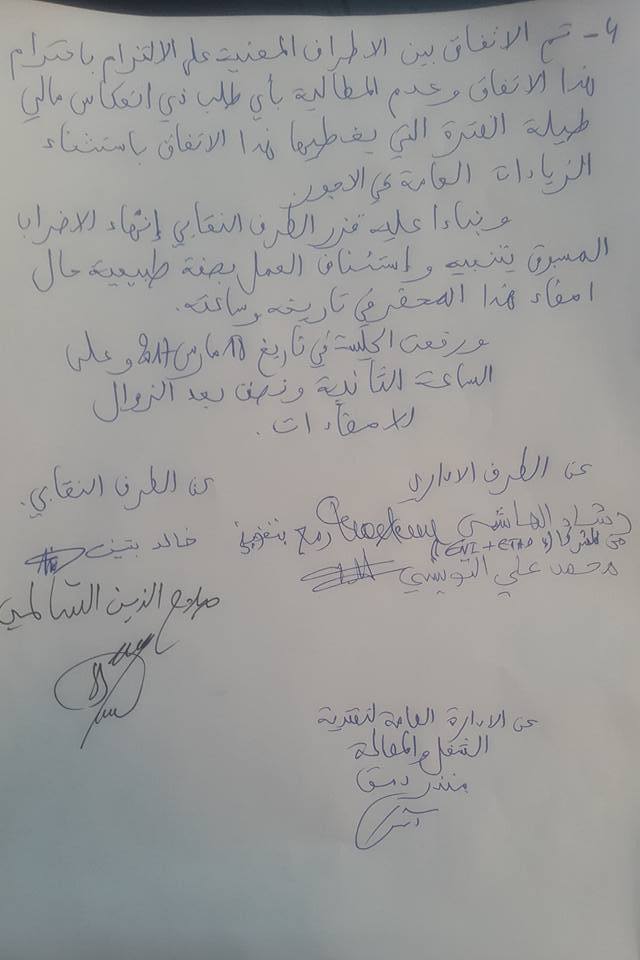 4 - تم الاتفاق بين الاطراف المعنية على الالتزام باحترام
هذا الاتفاق وعدم المطالبة بأي طلب ذي انعكاس مالي
طيلة الفترة التي يغطيها هذا الاتفاق باستثناء
الزيادات العامة في الاجور.
وبناءا عليه قرر الطرف النقابي إنهاء الاضراب
المسبوق بتنبيه وإستئناف العمل بصفة طبيعية حال
امضاء هذا المحضر في تاريخه وساعته.
ورفعت الجلسة في تاريخ 18 مارس 2017 وعلى
الساعة الثانية ونصف بعد الزوال
الامضاءات.
عن الطرف الاداري
عن الطرف النقابي.
رشاد الهاشمي
خالد بتين
(ENI + ETAP)
محمد علي التونسي
صلاح الدين السالمي
عن الادارة العامة لتفقدية
الشغل والمصالحة
منذر